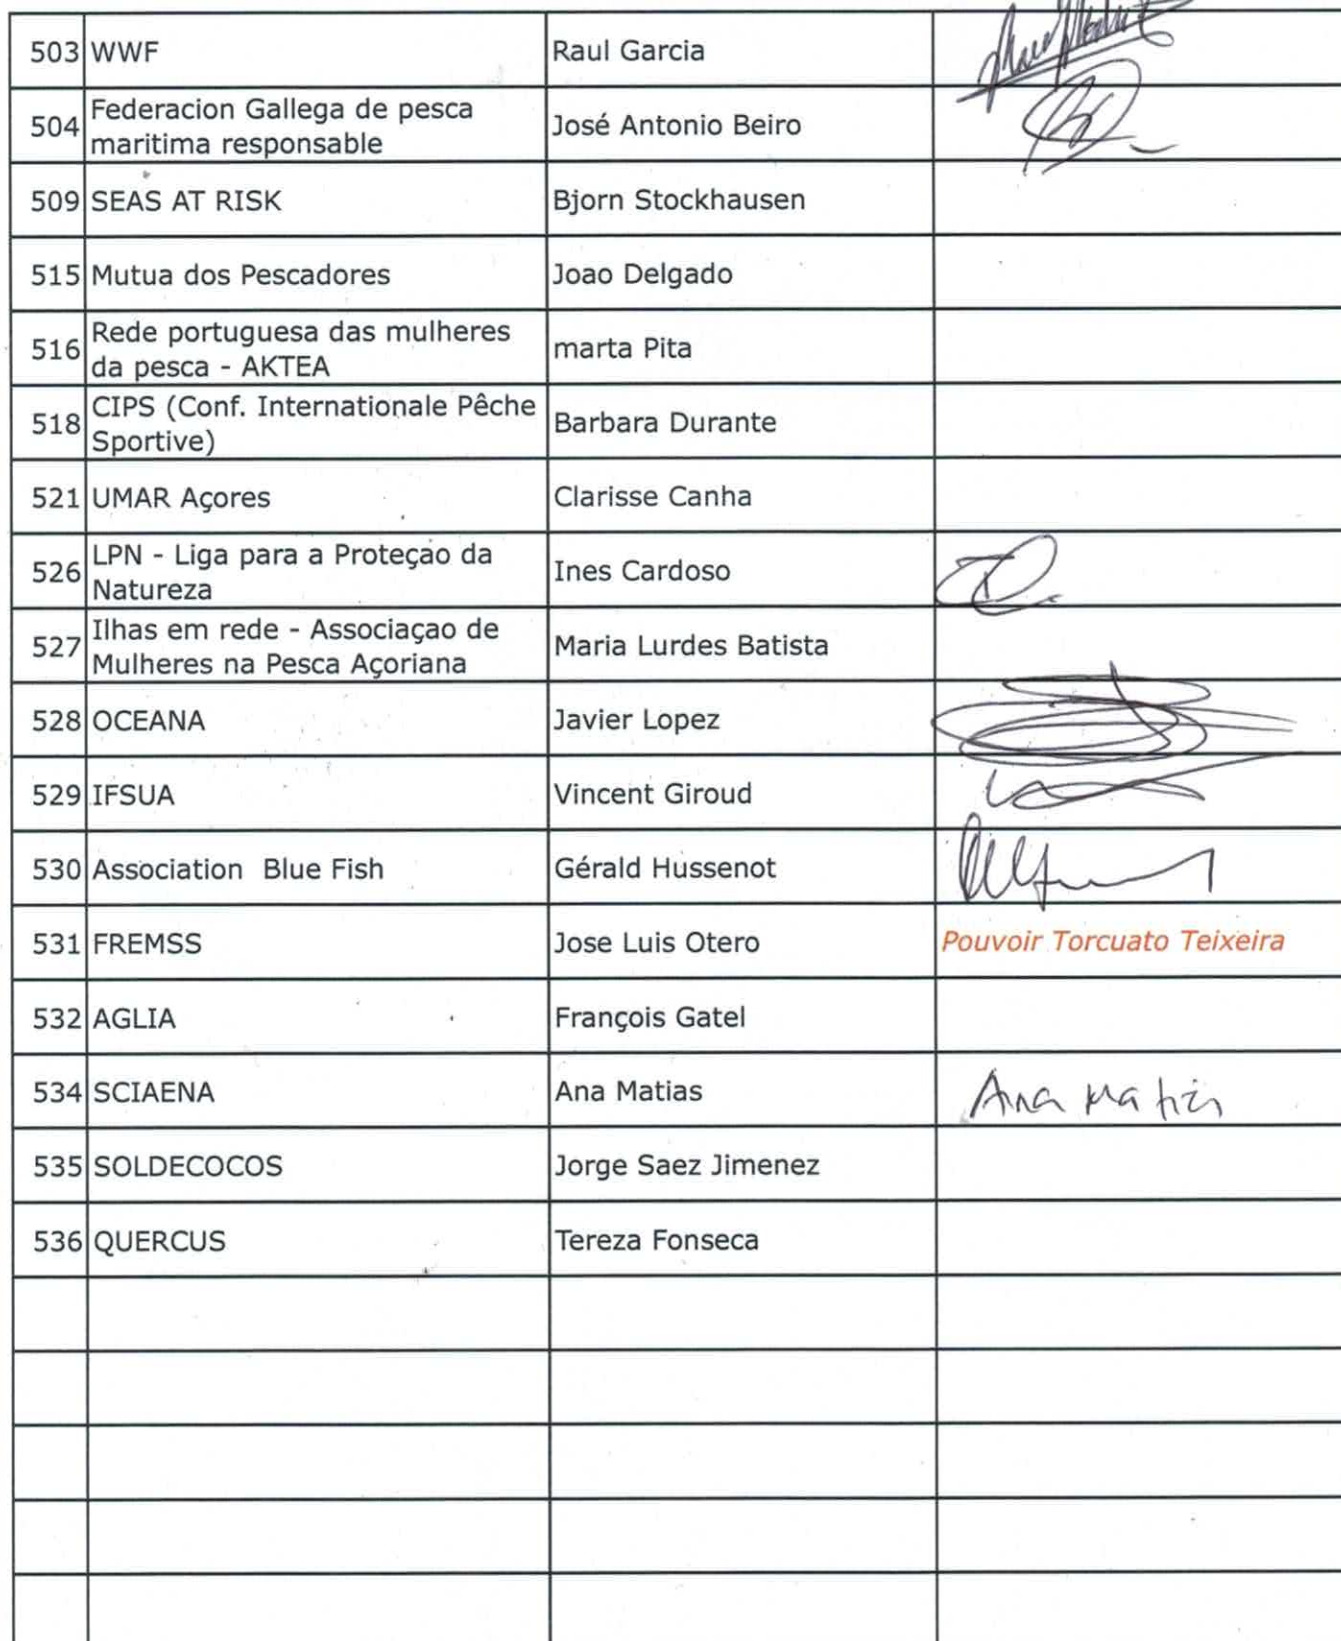 503 WWF Raul Garcia
504 Federacion Gallega de pesca maritima responsable José Antonio Beiro
509 SEAS AT RISK Bjorn Stockhausen
515 Mutua dos Pescadores Joao Delgado
516 Rede portuguesa das mulheres da pesca - AKTEA marta Pita
518 CIPS (Conf. Internationale Pêche Sportive) Barbara Durante
521 UMAR Açores Clarisse Canha
526 LPN - Liga para a Proteçao da Natureza Ines Cardoso
527 Ilhas em rede - Associaçao de Mulheres na Pesca Açoriana Maria Lurdes Batista
528 OCEANA Javier Lopez
529 IFSUA Vincent Giroud
530 Association Blue Fish Gérald Hussenot
531 FREMSS Jose Luis Otero Pouvoir Torcuato Teixeira
532 AGLIA François Gatel
534 SCIAENA Ana Matias Ana Matias
535 SOLDECOCOS Jorge Saez Jimenez
536 QUERCUS Tereza Fonseca